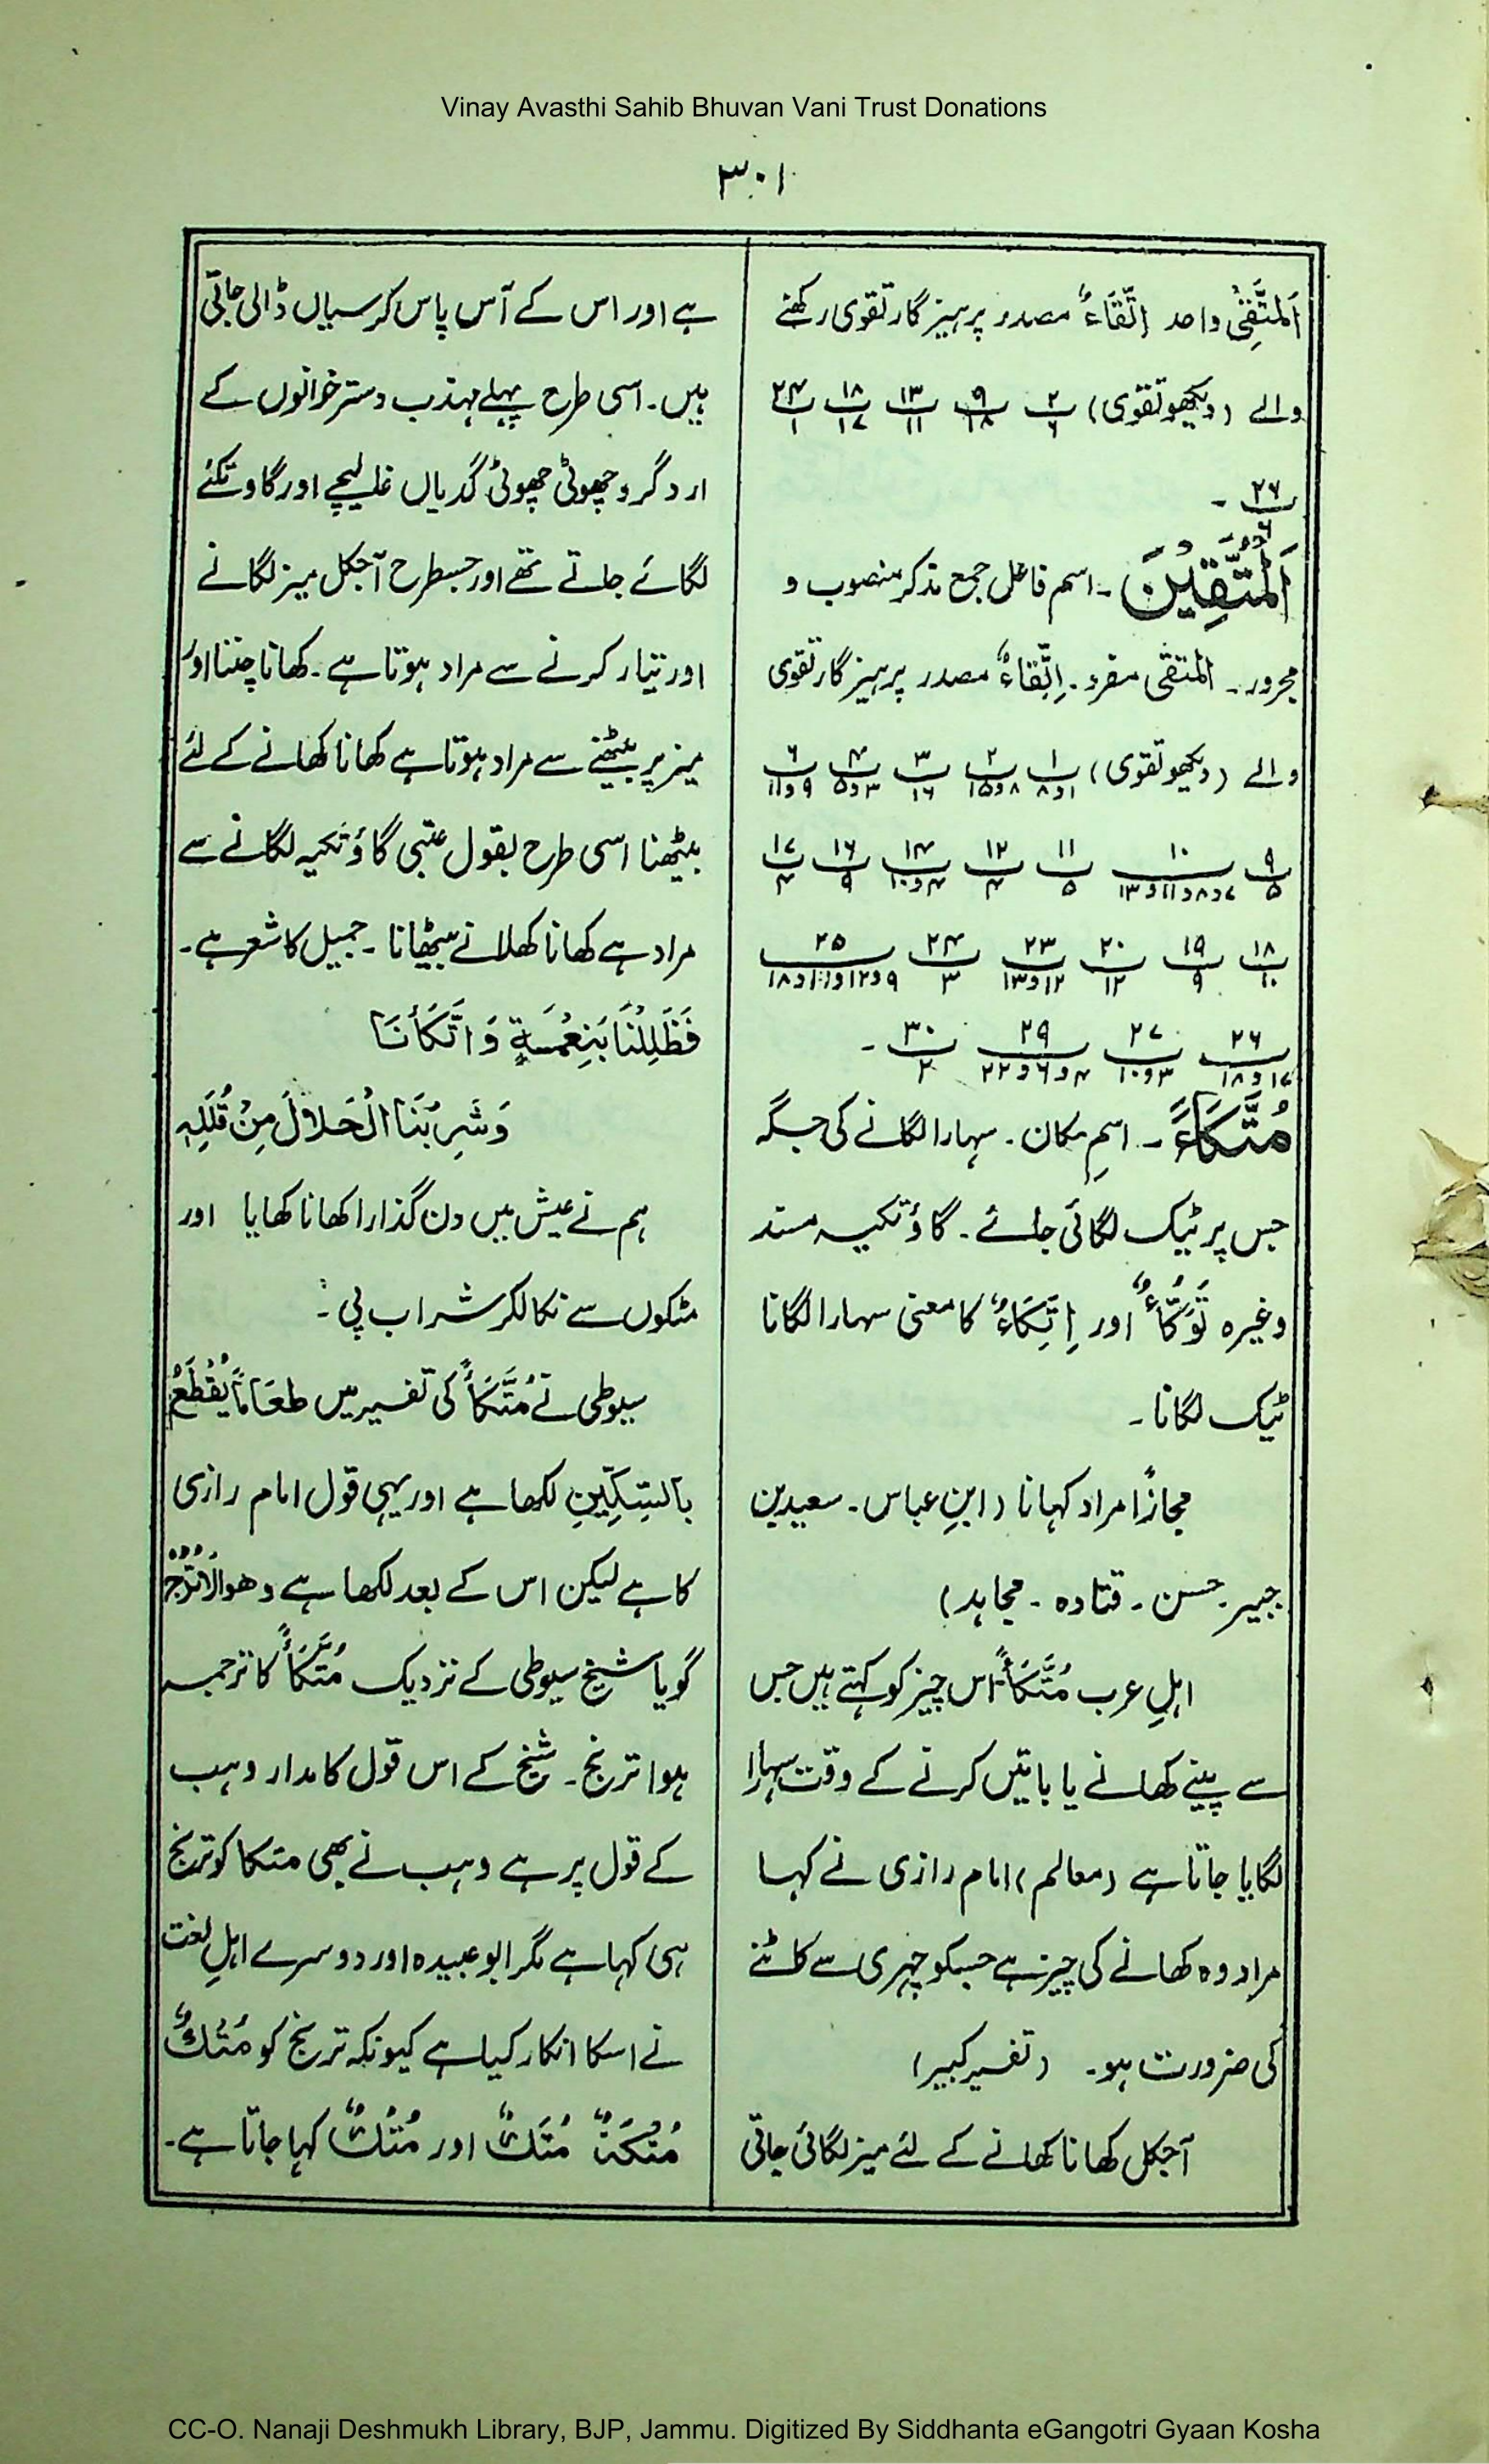 Vinay Avasthi Sahib Bhuvan Vani Trust Donations
۳۰۱
اَلْمُتَّقِیْ واحد اِتِّقَاءٌ مصدر پرہیزگار تقوی رکھنے
والے (دیکھو تقوی) ۲/۶ ۹/۱۸ ۱۳/۱۱ ۱۸/۱۷ ۲۴/۱
۲۶/۶ ۔
اَلْمُتَّقِیْنَ ۔ اسم فاعل جمع مذکر منصوب و
مجرور۔ المتقی مفرد۔ اِتِّقَاءٌ مصدر پرہیزگار تقوی
والے (دیکھو تقوی) ۱/۱و۸ ۲/۸و۱۵ ۳/۱۶ ۴/۳و۵ ۶/۹و۱۱
۹/۵ ۱۰/۷و۸و۱۱و۱۳ ۱۱/۵ ۱۲/۴ ۱۴/۴و۱۰ ۱۶/۹ ۱۷/۴
۱۸/۱۰ ۱۹/۹ ۲۰/۱۲ ۲۳/۱۲و۱۳ ۲۴/۳ ۲۵/۹و۱۲و۱۰و۱۸
۲۶/۱۷و۱۸ ۲۷/۳و۱۰ ۲۹/۴و۶و۲۲ ۳۰/۲ ۔
مُتَّکَاءً ۔ اسمِ مکان۔ سہارا لگانے کی جگہ
جس پر ٹیک لگائی جائے۔ گاؤ تکیہ مسند
وغیرہ تَوَکُّاءٌ اور اِتِّکَاءٌ کا معنی سہارا لگانا
ٹیک لگانا۔
مجازًا مراد کہانا (ابنِ عباس۔ سعید بن
جبیر۔ حسن۔ قتادہ۔ مجاہد)
اہلِ عرب مُتَّکَأً اس چیز کو کہتے ہیں جس
سے پینے کھانے یا باتیں کرنے کے وقت سہارا
لگایا جاتا ہے (معالم) امام رازی نے کہا
مراد وہ کھانے کی چیز ہے جسکو چہری سے کاٹنے
کی ضرورت ہو۔ (تفسیر کبیر)
آجکل کھانا کھانے کے لئے میز لگائی جاتی
ہے اور اس کے آس پاس کرسیاں ڈالی جاتی
ہیں۔ اسی طرح پہلے مہذب دسترخوانوں کے
ارد گرد چھوٹی چھوٹی گدیاں غلیچے اور گاوتکئے
لگائے جاتے تھے اور جسطرح آجکل میز لگانے
اور تیار کرنے سے مراد ہوتا ہے۔ کھانا چننا اور
میز پر بیٹھنے سے مراد ہوتا ہے کھانا کھانے کے لئے
بیٹھنا اسی طرح بقول عتبی گاؤ تکیہ لگانے سے
مراد ہے کھانا کھلانے بیٹھانا۔ جمیل کا شعر ہے۔
فَظَلِلْنَا بِنِعْمَةٍ وَاتَّکَأْنَا
وَشَرِبْنَا الْحَلَالَ مِنْ قُلَلِہٖ
ہم نے عیش میں دن گذارا کھانا کھایا اور
مٹکوں سے نکالکر شراب پی۔
سیوطی نے مُتَّکَأً کی تفسیر میں طعَامًا یُقْطَعُ
بالسِّکِّیْنِ لکھا ہے اور یہی قول امام رازی
کا ہے لیکن اس کے بعد لکھا ہے وھوالاُتْرُجُّ
گویا شیخ سیوطی کے نزدیک مُتَّکَأً کا ترجمہ
ہوا ترنج۔ شیخ کے اس قول کا مدار وہب
کے قول پر ہے وہب نے بھی متکا کو ترنج
ہی کہا ہے مگر ابو عبیدہ اور دوسرے اہلِ لغت
نے اسکا انکار کیا ہے کیونکہ ترنج کو مُتْکٌ
مُتْکَةٌ مُتَکٌ اور مُتُکٌ کہا جاتا ہے۔
CC-O. Nanaji Deshmukh Library, BJP, Jammu. Digitized By Siddhanta eGangotri Gyaan Kosha